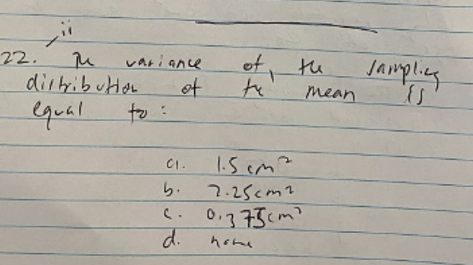 ii
22. The variance of the sampling
distribution of the mean is
equal to :
a. 1.5 cm²
b. 2.25cm²
c. 0.375cm²
d. none